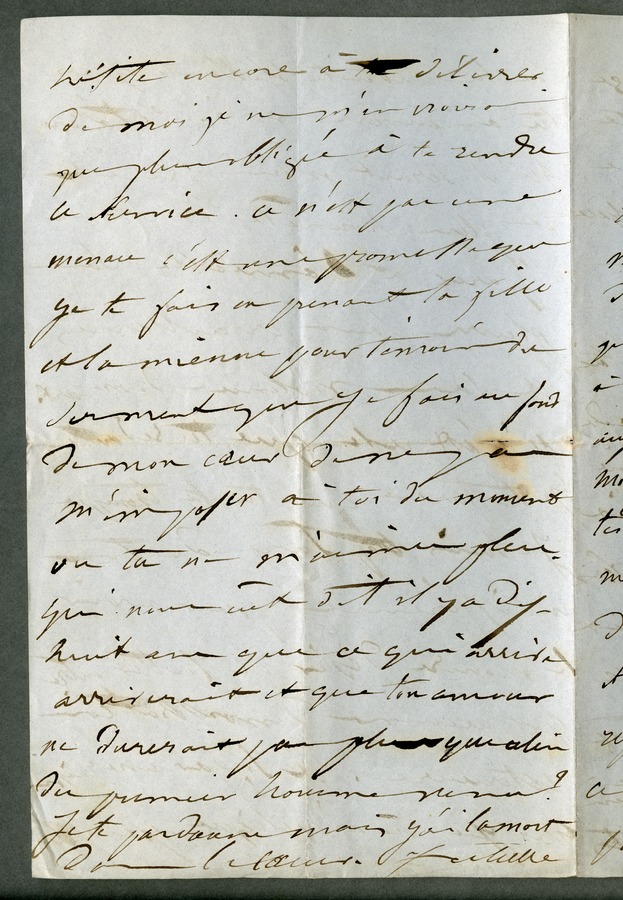 hésite encore à te délivrer
de moi je ne m'en croirai
que plus obligée à te rendre
ce service. ce n'est pas une
menace c'est une promesse que
je te fais en prenant ta fille
et la mienne pour témoin du
serment que je fais au fond
de mon cœur de ne pas
m'imposer à toi du moment
ou tu ne m'aimes plus.
qui nous eut dit il y a dix
huit ans que ce qui arrive
arriverait et que ton amour
ne durerait pas plus que celui
du premier homme venu?
Je te pardonne mais j'ai la mort
dans le cœur.